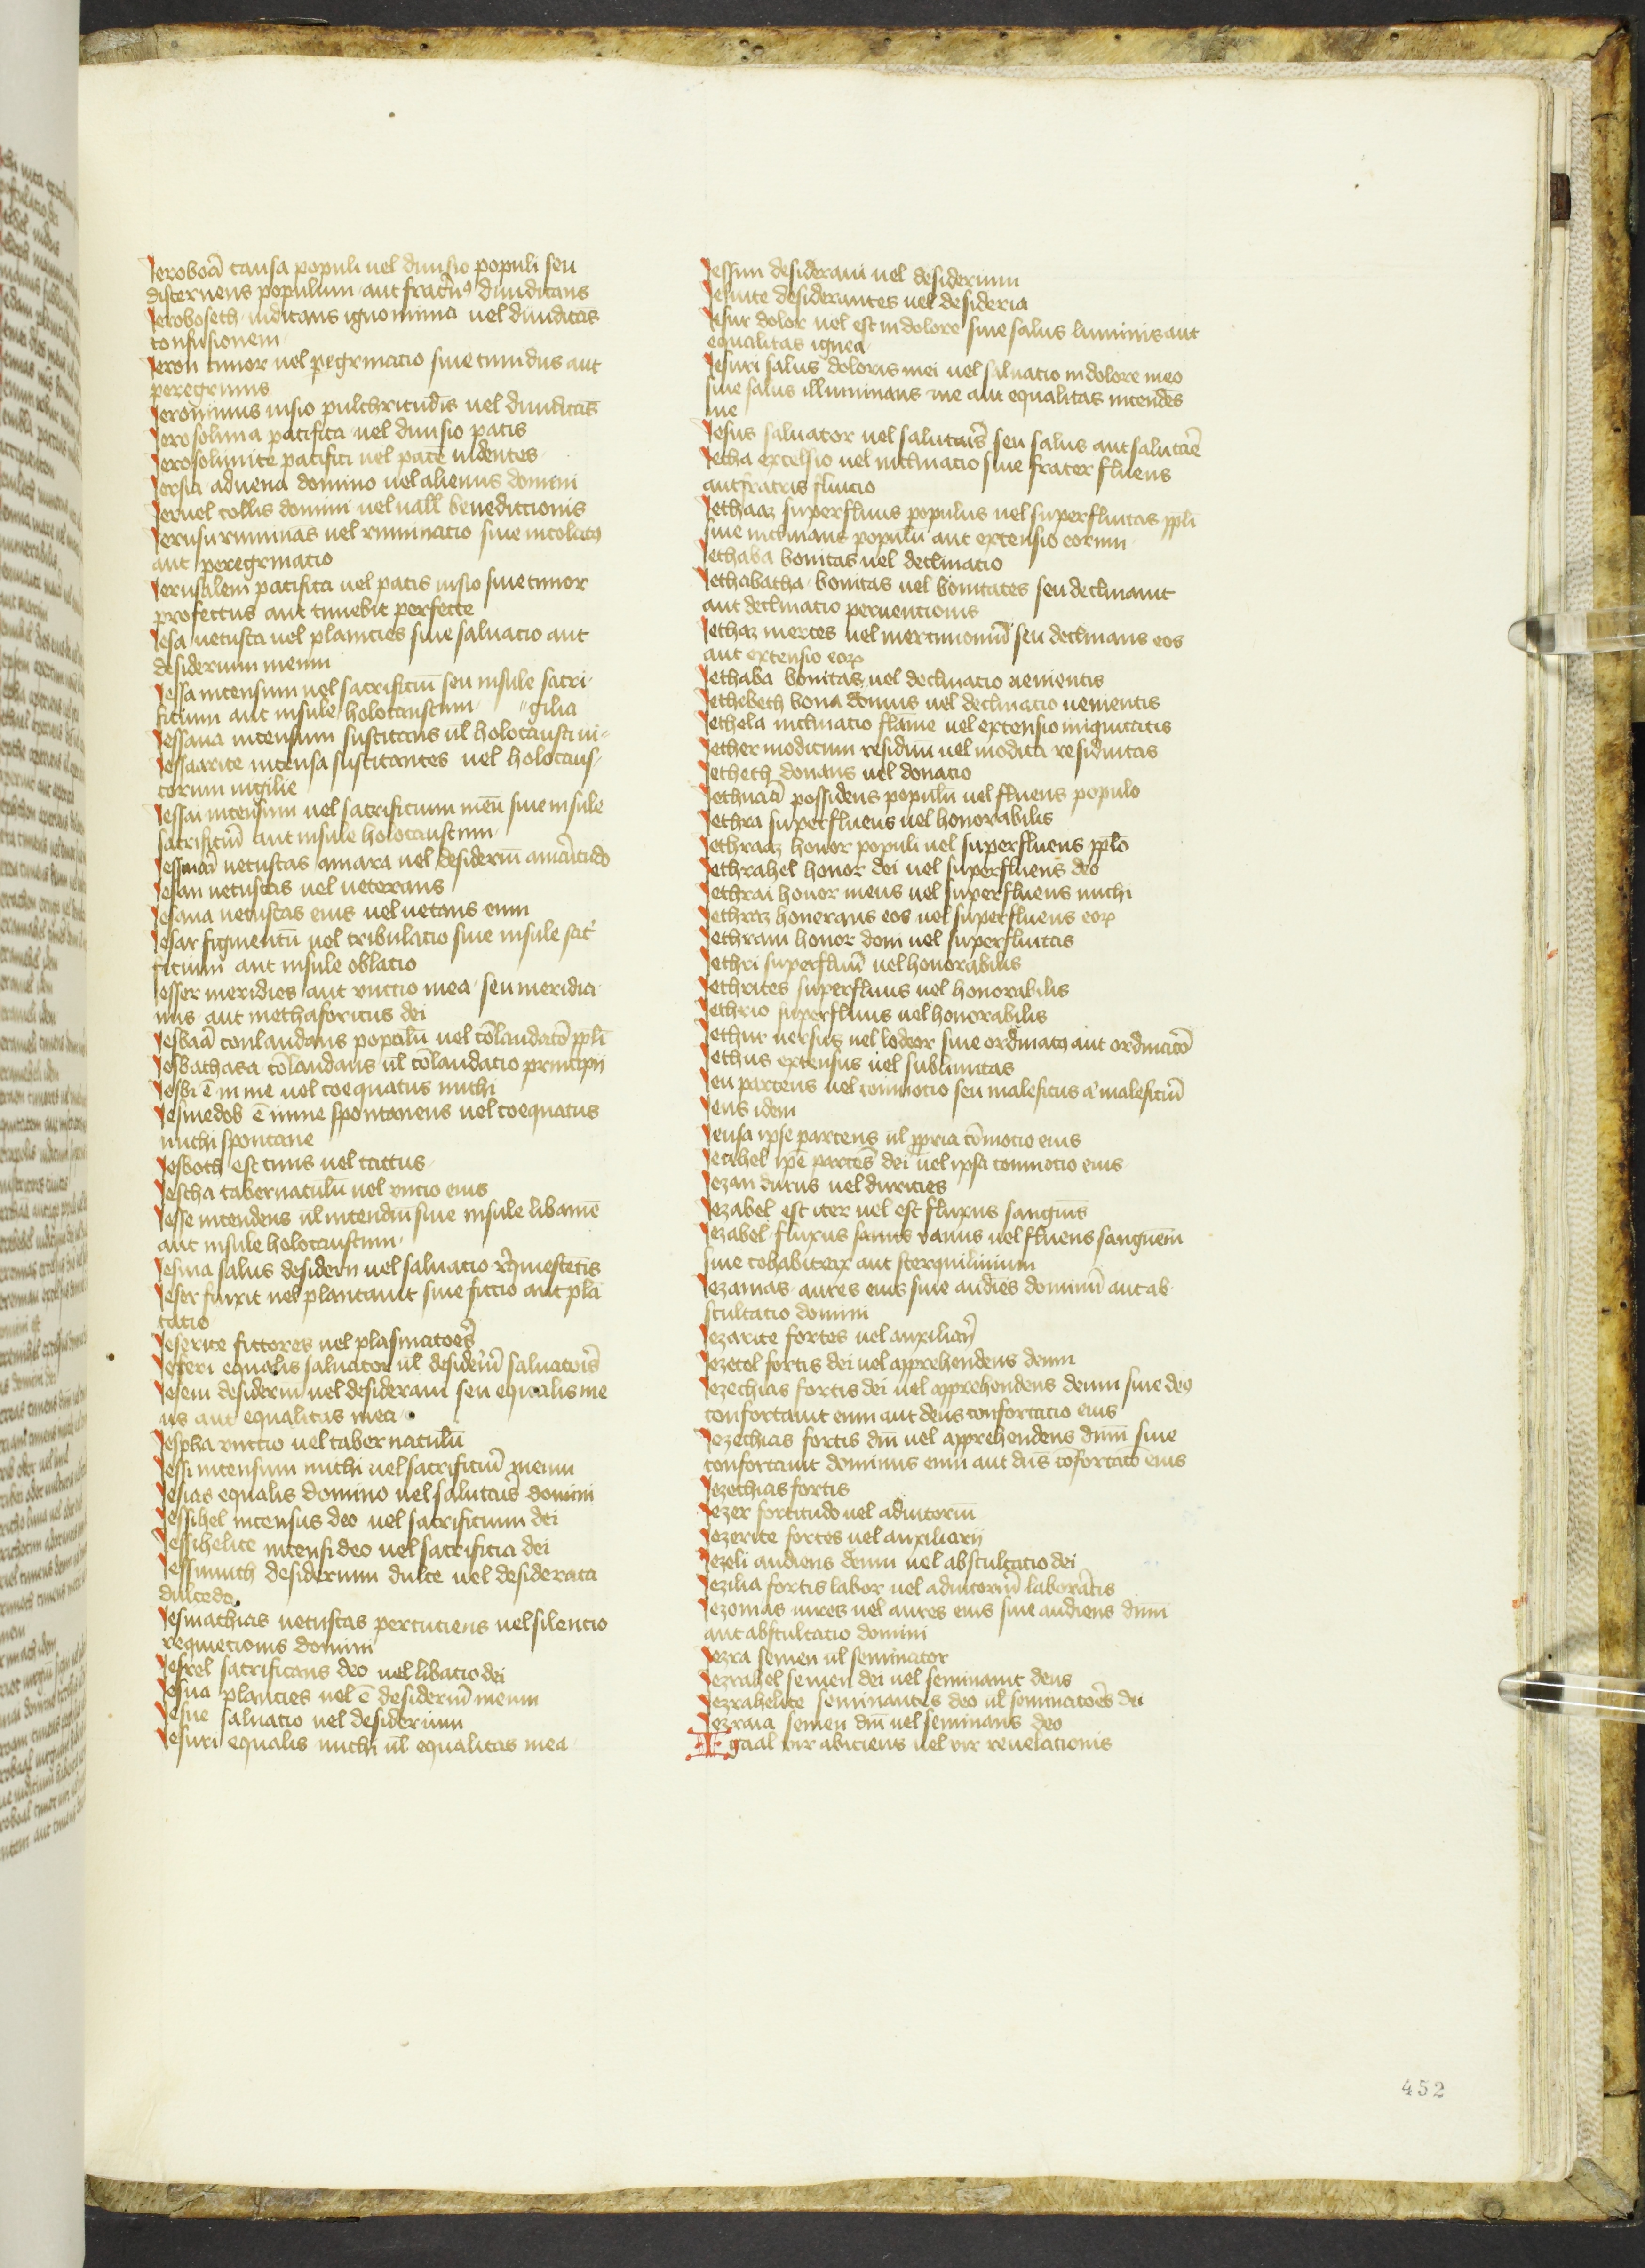 Ieroboā causa populi uel diuisio populi seu
discernens populum aut fratrus diiudicans
Ieroboseth iudicans ignominia uel diiudicās
confusionem
Ieron timor uel pegrinacio siue timidus aut
peregrinus
Ieronimus uisio pulchritudis uel diiudicās
Ierosolima pacifica uel diuisio pacis
Ierosolimite pacifici uel pace uidentes
Iersia aduena domino uel alienus domini
Ieruel collis domini uel uall benediccionis
Ierusu ruminās uel ruminacio siue incolatus
aut peregrinacio
Ierusalem pacifica uel pacis uisio siue timor
profectus aut timebit perfecte
Iesa uetusta uel planicies siue saluacio aut
desiderium meum
Iessa incensum uel sacrificiū seu insule sacri
ficium aut insule holocaustum gilia
Iessana incensum suscitans ul holocausti ui
Iessuarite incensa suscitantes uel holocaus
torum uigilie
Iessai incensum uel sacrificium meū siue insule
sacrificiū aut insule holocaustum
uetustas amara uel desideriū amaritudo
Iesan uetustas uel ueterans
Iesana uetustas eius uel uetans eum
Iesar figmentū uel tribulacio siue insule sac
ficium aut insule oblacio
Iesser meridies aut vnctio mea seu meridia
nus aut methaforicus dei
Iesbaā conlaudans populū uel cōlaudacō ppli
Iesbathasa cōlaudans ul cōlaudacio principii
Iesbi ē in me uel coequatus michi
Iesmedob ē inme spontaneus uel coequatus
michi spontane
Iesboth est cinis uel cactus
Iescha tabernaculū uel vncio eius
Iesse incendens ul incendiū siue insule libamē
aut insule holocaustum
Iesina salus desiderii uel saluacio requiescētis
Ieser finxit uel plantauit siue fictio aut plā
tacio
Ieserite fictores uel plasmatores
Ieseri equalis saluator ul desideriū saluatoris
Iesem desiderui uel desideraui seu equalis me
us aut equalitas mea
Iespha vnctio uel tabernaculū
Iessi incensum michi uel sacrificiū meum
Iesias equalis domino uel salutaris domini
Iessihel incensus deo uel sacrificium dei
Iessihelite incensi deo uel sacrificia dei
Iessimuth desiderium dulce uel desiderata
dulcedo
Iesmathias uetustas percuciens uel silencio
requiecionis domini
Iesrel sacrificans deo uel libacio dei
Iesua plancies uel ē desideriū meum
Iesue saluacio uel desiderium
Iesuri equalis michi ul equalitas mea
Iessim desideraui uel desiderium
Iesuite desiderantes uel desideria
Iesur dolor uel est indolore siue salus luminis aut
equalitas ignea
Iesuri salus doloris mei uel saluacio indolore meo
siue salus illuminans me aut equalitas incendēs
me
Iesus saluator uel salutaris seu salus aut salutāē
Ietha excelsio uel inclinacio siue frater fluens
aut fratris fluicio
Iethaaz superfluus populus uel superfluitas ppli
siue inclinauit populū aut extensio eorum
Iethaba bonitas uel declinacio
Iethabatha bonitas uel bonitates seu declinauit
aut declinacio peruencionis
Iethaz merces uel mercimoniū seu declinans eos
aut extensio eorum
Iethaba bonitas uel declinacio uenientis
Iethebeth bona domus uel declinacio uenientis
Iethela inclinacio flāme uel extensio iniquitatis
Iether modicum residuū uel modica residuitas
Ietheth donans uel donacio
possidens populū uel fluens populo
Iethra superfluens uel honorabilis
Iethraaz honor populi uel superfluens pplo
Iethrahel honor dei uel superfluens deo
Iethrai honor meus uel superfluens michi
Iethraz honerans eos uel superfluens eorum
Iethram honor dom uel superfluitas
Iethri superfluū uel honorabilis
Iethrites superfluus uel honorabilis
Iethrio superfluus uel honorabilis
Iethur uersus uel lodeor siue ordinatus aut ordinacō
Iethus extensus uel sublimitas
Ieu parcens uel commocio seu maleficus a maleficiū
Ieus idem
Ieusa ipse parcens ul ppria cōmocio eius
Ieuhel ipē parcēs dei uel ipsa commocio eius
Iezan durus uel duricies
Iezabel est iter uel est fluxus sanguīs
Iezabel fluxus sanus vanus uel fluens sanguēm
siue cohabitrix aut sterquilinium
Iezamas aures eius siue audiēs dominū aut ab
scultacio domini
Iezarite fortes uel auxiliarii
Iezecel fortis dei uel apprehendens deum
Iezechias fortis dei uel apprehendens deum siue deus
confortauit eum aut deus confortacio eius
Iezechias fortis dm uel apprehendens dnm siue
confortauit dominus eum aut dns cōfortacō eius
Iezechias fortis
Iezer fortitudo uel adiutoriū
Iezerite fortes uel auxiliarij
Iezeli audiens deum uel abscultacio dei
Iezilia fortis labor uel adiutoriū laborātis
Iezomas uires uel aures eius siue audiens dnm
aut abscultacio domini
Iezra semen ul seminator
Iezrahel semen dei uel seminauit deus
Iezrahelite seminantes deo ul seminatores dei
Iezraia semen dm uel seminans deo
Igaal vir abiciens uel vir reuelacionis
452